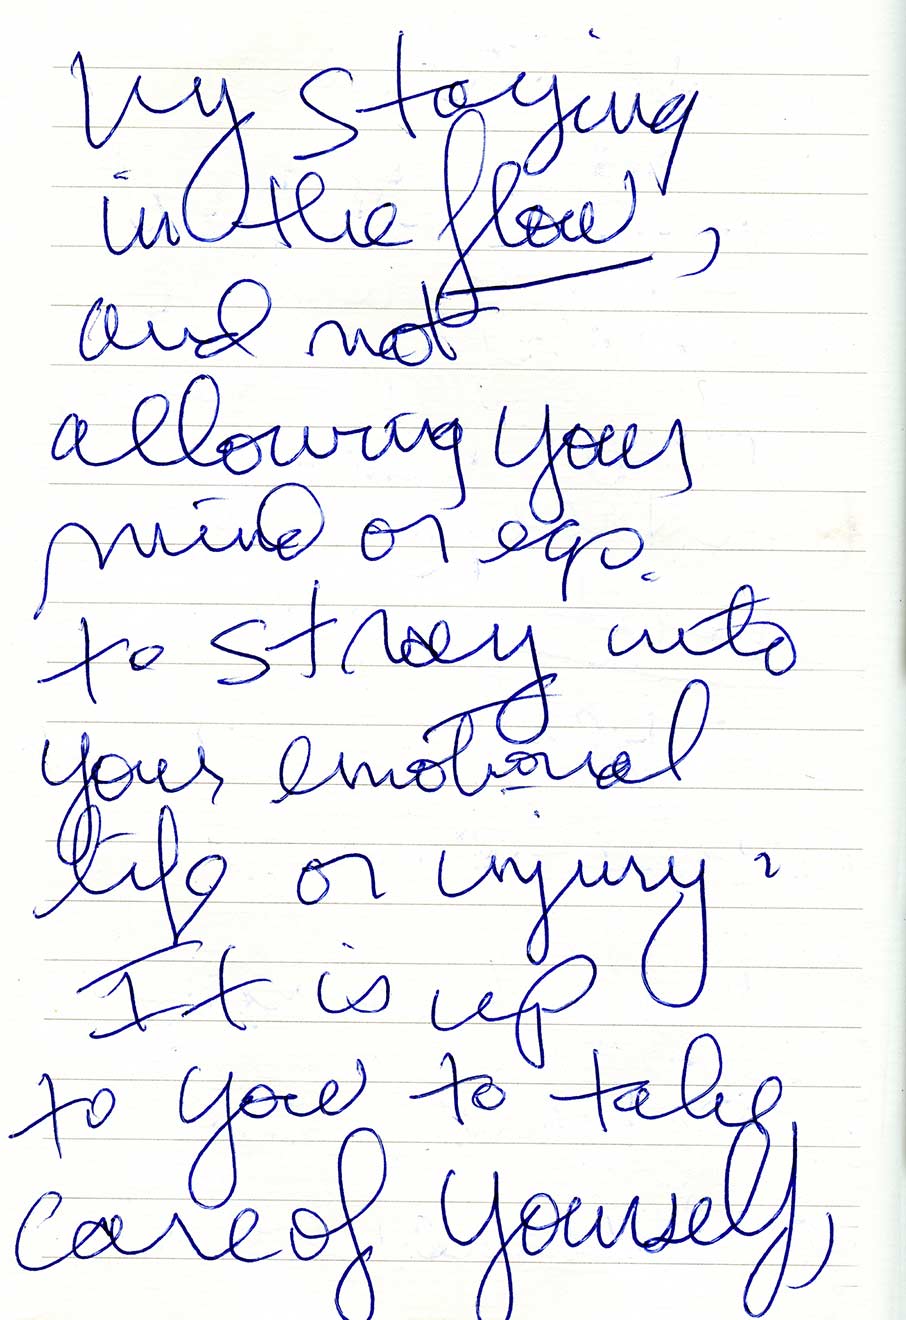 by staying
in the flow,
and not
allowing your
mind or ego.
to stray into
your emotional
life or injury.
It is up
to you to take
care of yourself,